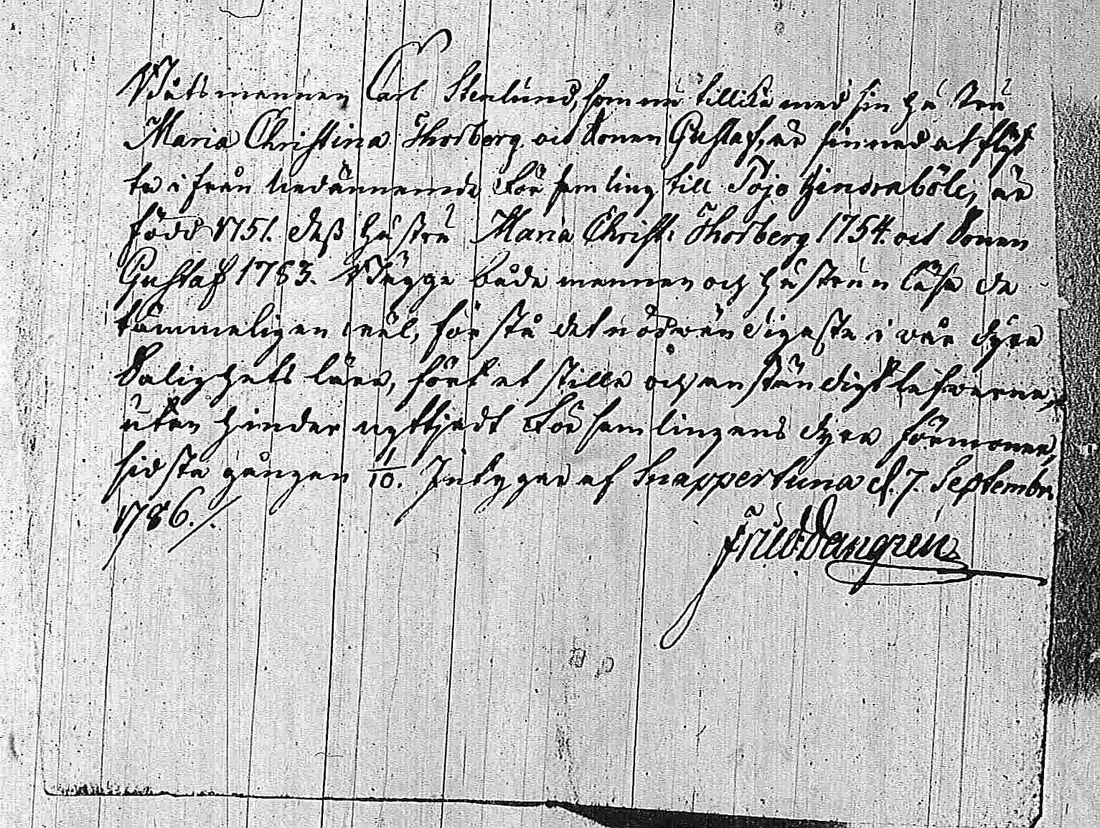 Båtsmannen Carl Stenlund, som nu tillika med sin hustru
Maria Christina Thorberg och Sonen Gustaf, är sinnad at flyt
ta ifrån nedannemde Församling till Pojo Hindraböle, är
född 1751. dess hustru Maria Christ: Thorberg 1754. och Sonen
Gustaf 1783. Bägge både mannen och hustrun läsa de
tämmeligen wäl, förstå det nödwändigaste i vår dyra
Salighets lära, fört et stilla och anständigt lefwerne,
utan hinder nyttjadt Församlingens dyra förmoner,
sidsta gången 1/10. Intygar af Snappertuna d. 7. Septembr
1786./
Fried: Dangren